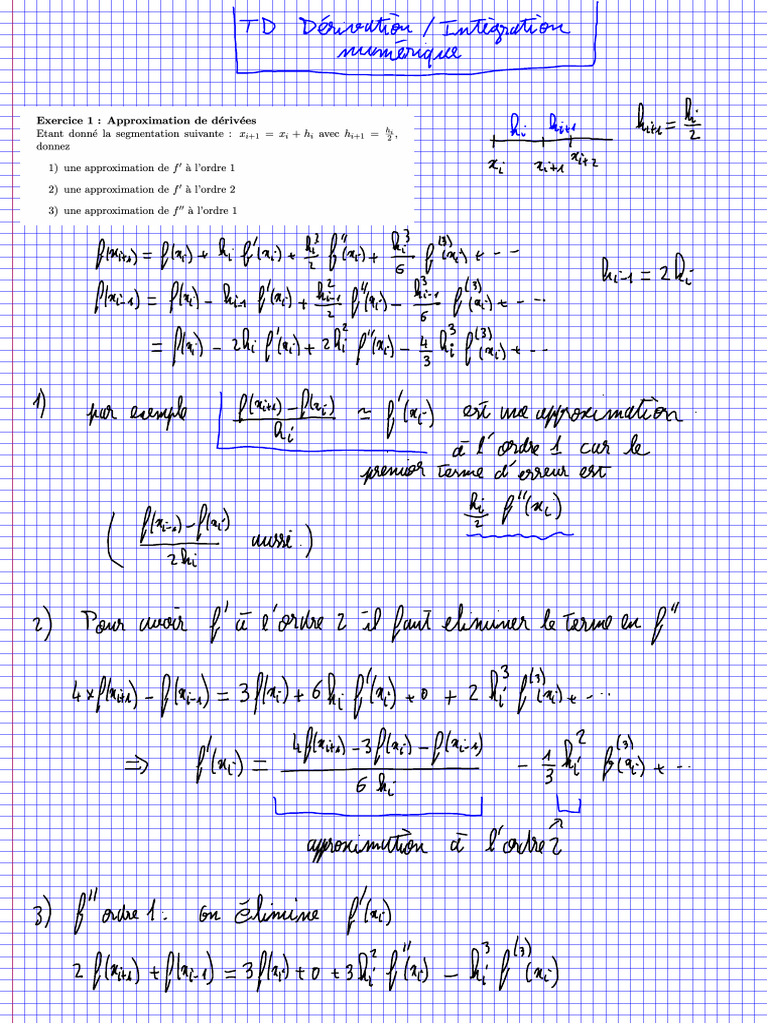 TD Dérivation / Intégration
numérique
Exercice 1 : Approximation de dérivées
Etant donné la segmentation suivante : x_{i+1} = x_i + h_i avec h_{i+1} = h_i/2,
donnez
1) une approximation de f′ à l'ordre 1
2) une approximation de f′ à l'ordre 2
3) une approximation de f″ à l'ordre 1
h_i h_{i+1}
x_i x_{i+1} x_{i+2}
h_{i+1} = h_i/2
f(x_{i+1}) = f(x_i) + h_i f'(x_i) + h_i²/2 f''(x_i) + h_i³/6 f^{(3)}(x_i) + ...
h_{i-1} = 2h_i
f(x_{i-1}) = f(x_i) - h_{i-1} f'(x_i) + h_{i-1}²/2 f''(x_i) - h_{i-1}³/6 f^{(3)}(x_i) + ...
= f(x_i) - 2h_i f'(x_i) + 2h_i² f''(x_i) - 4/3 h_i³ f^{(3)}(x_i) + ...
1) par exemple (f(x_{i+1}) - f(x_i))/h_i ≈ f'(x_i) est une approximation
à l'ordre 1 car le
premier terme d'erreur est
h_i/2 f''(x_i)
( (f(x_{i-1}) - f(x_i))/2h_i aussi.)
2) Pour avoir f' à l'ordre 2 il faut eliminer le terme en f''
4×f(x_{i+1}) - f(x_{i-1}) = 3f(x_i) + 6h_i f'(x_i) + 0 + 2 h_i³ f^{(3)}(x_i) + ...
⇒ f'(x_i) = (4f(x_{i+1}) - 3f(x_i) - f(x_{i-1}))/(6 h_i) - 1/3 h_i² f^{(3)}(x_i) + ...
approximation à l'ordre 2
3) f'' ordre 1 : on élimine f'(x_i)
2 f(x_{i+1}) + f(x_{i-1}) = 3f(x_i) + 0 + 3h_i² f''(x_i) - h_i³ f^{(3)}(x_i)